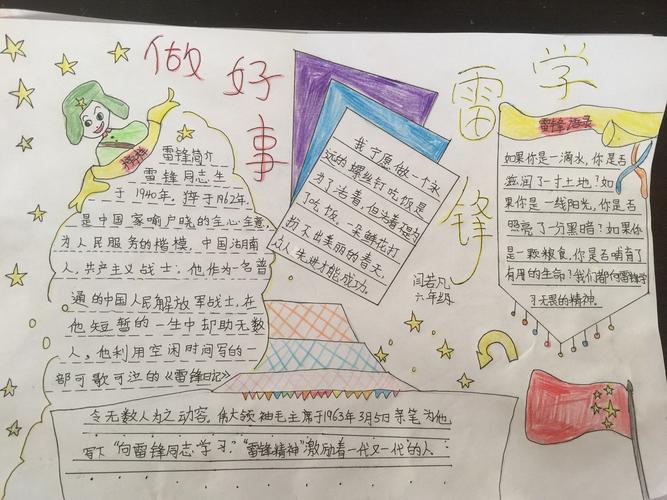 做好事
学雷锋
楷模
雷锋简介
雷锋同志生
于1940年,猝于1962年
是中国家喻户晓的全心全意
为人民服务的楷模,中国湖南
人,共产主义战士,他作为名普
通的中国人民解放军战士,在
他短暂的一生中却助无数
人,他利用空闲时间写的一
部可歌可泣的《雷锋日记》
令无数人为之动容,伟大领袖毛主席于1963年3月5日亲笔为他
写下“向雷锋同志学习”“雷锋精神”激励着一代又一代的人
我宁愿做一个永
远的螺丝钉吃饭是
为了活着,但活着不是为
了吃饭,一朵鲜花打
扮不出美丽的春天,
众人先进才能成功。
闫若凡
六年级
雷锋语录
如果你是一滴水,你是否
滋润了一寸土地?如
果你是一线阳光,你是否
照亮了一分黑暗?如果你
是一颗粮食,你是否哺育了
有用的生命?我们都向雷锋学
习无畏的精神.